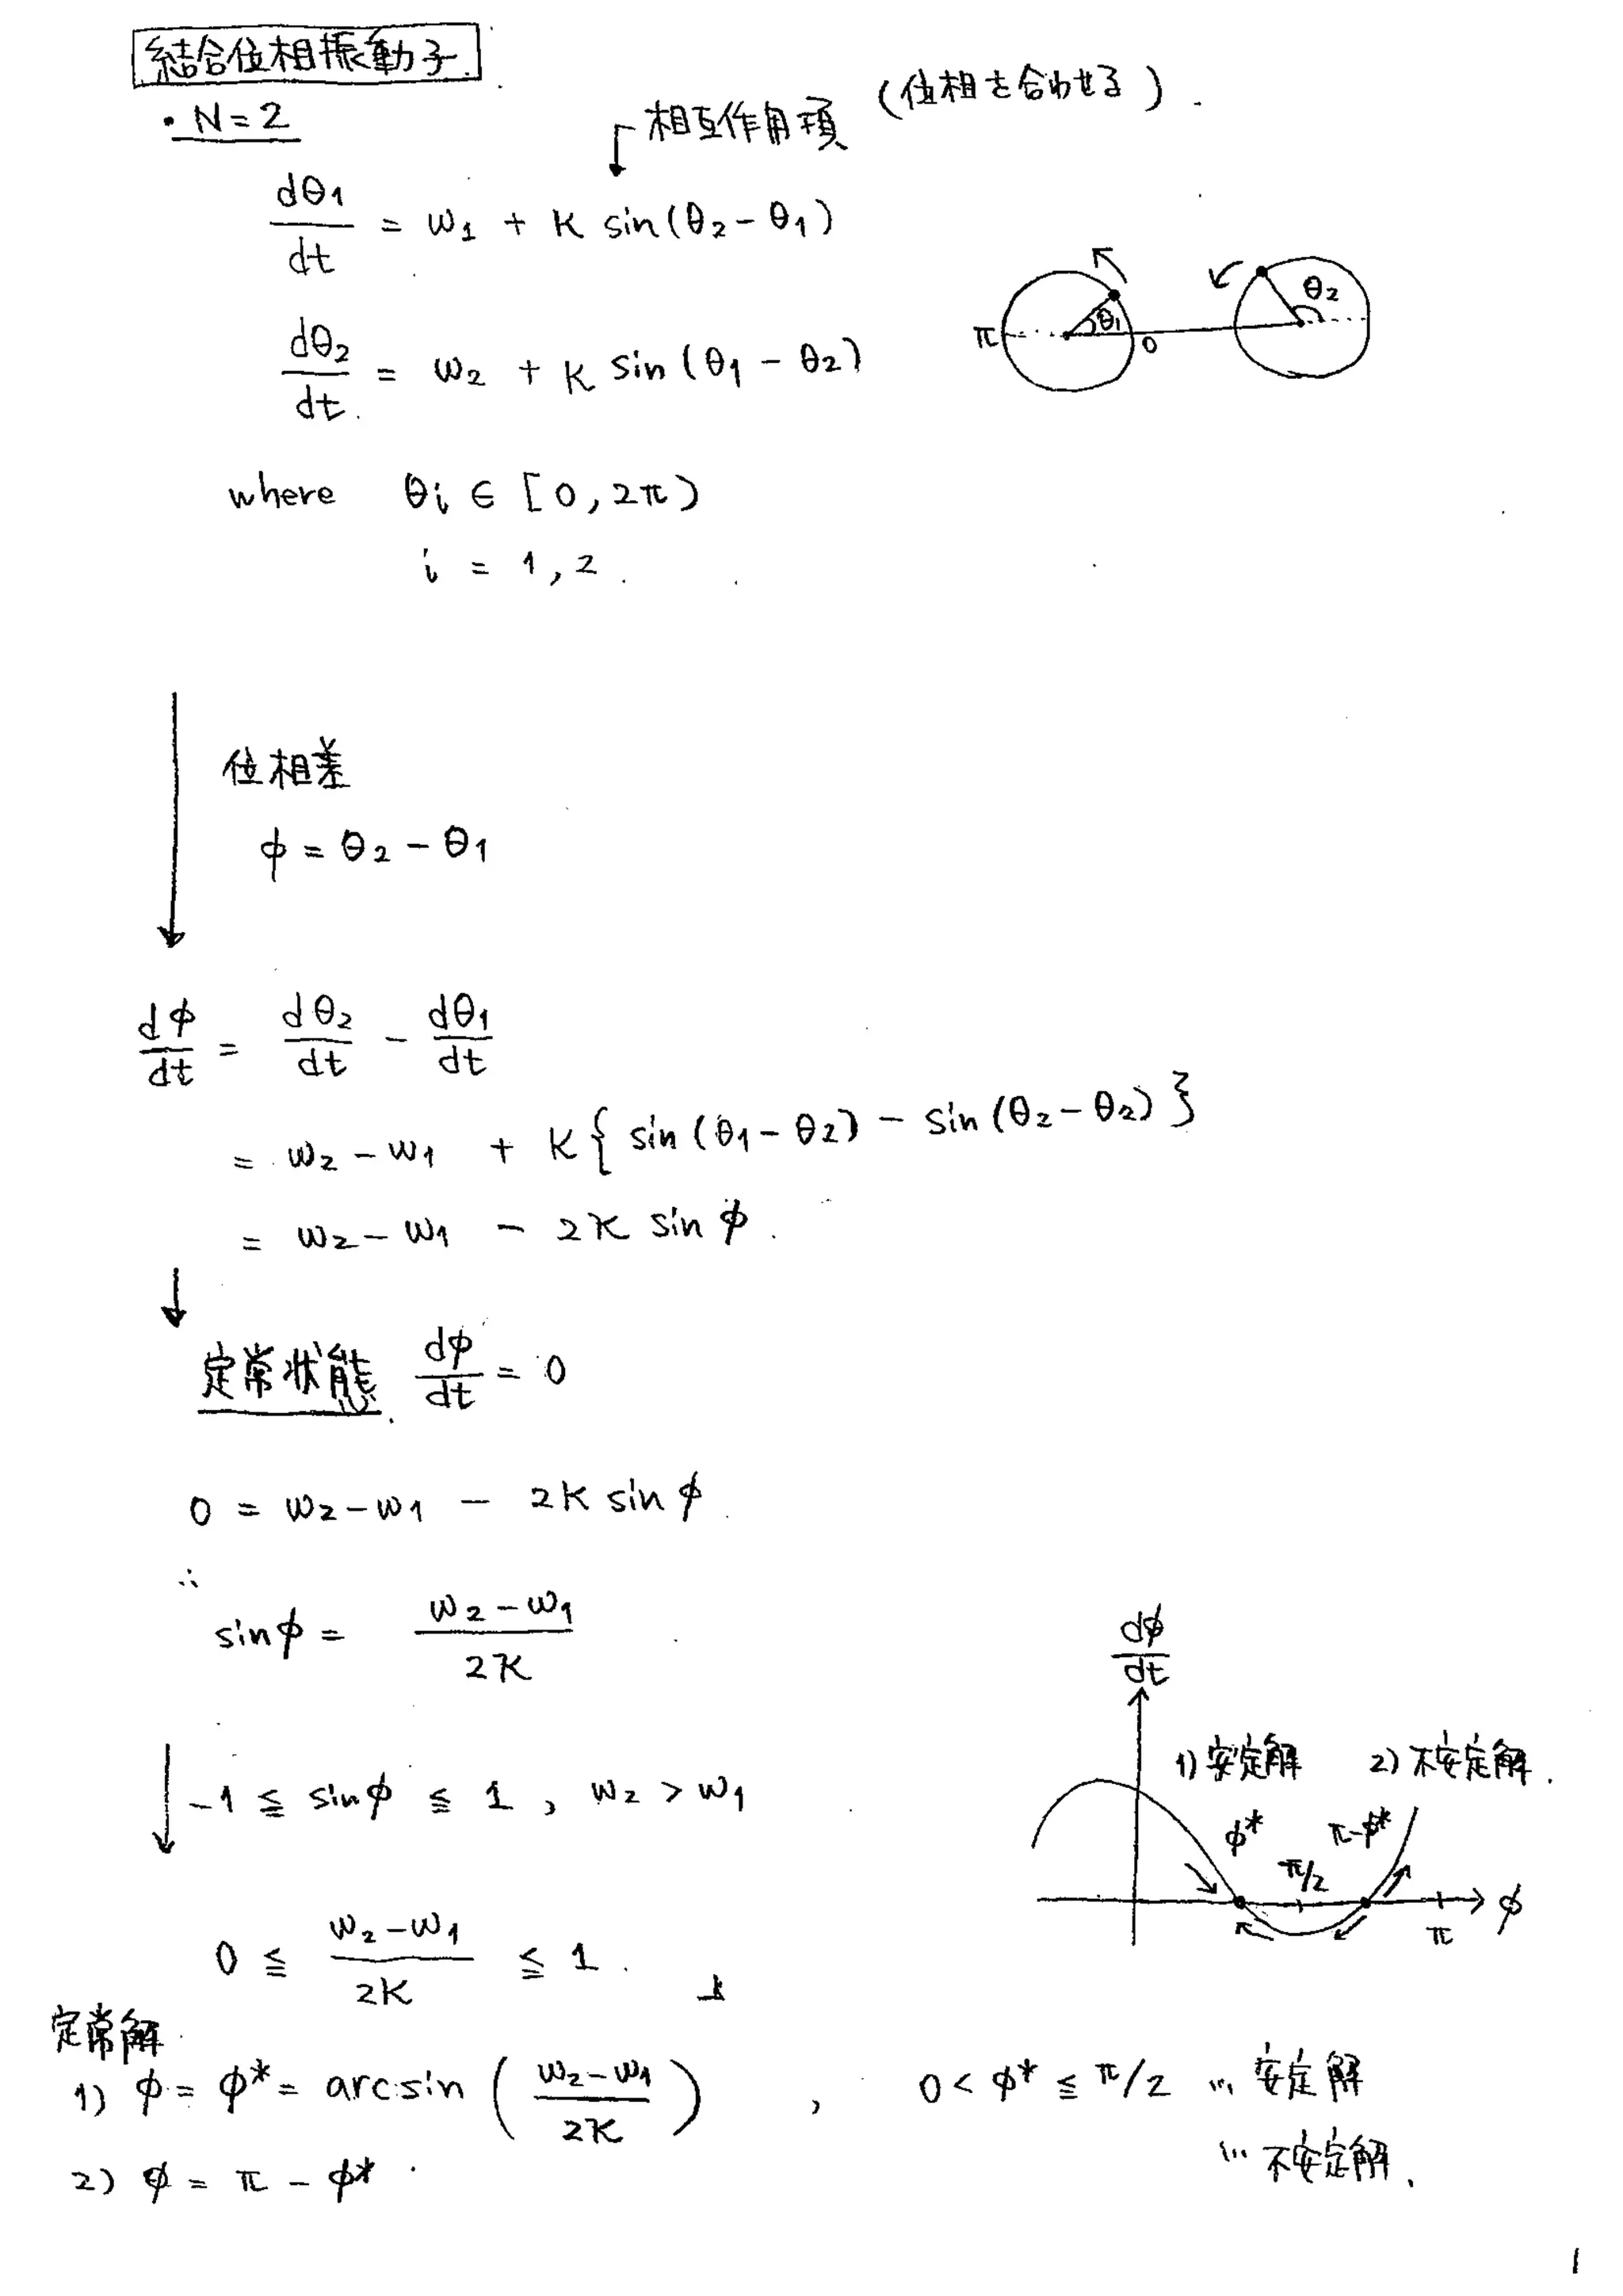 結合位相振動子.
・N=2
↓相互作用項 (位相を合わせる).
dθ1/dt = ω1 + K sin(θ2-θ1)
dθ2/dt = ω2 + K sin(θ1-θ2)
π θ1 0 θ2
where θi ∈ [0, 2π)
i = 1, 2.
位相差
φ = θ2 - θ1
dφ/dt = dθ2/dt - dθ1/dt
= ω2 - ω1 + K{ sin(θ1-θ2) - sin(θ2-θ2) }
= ω2 - ω1 - 2K sin φ.
↓
定常状態. dφ/dt = 0
0 = ω2 - ω1 - 2K sin φ
∴
sin φ = (ω2-ω1)/2K
↓ -1 ≦ sin φ ≦ 1, ω2 > ω1
0 ≦ (ω2-ω1)/2K ≦ 1.
dφ/dt
1) 安定解 2) 不安定解.
φ* π-φ*
π/2 φ
π
定常解
1) φ = φ* = arcsin( (ω2-ω1)/2K ), 0 < φ* ≦ π/2 … 安定解
2) φ = π - φ* … 不安定解.
1